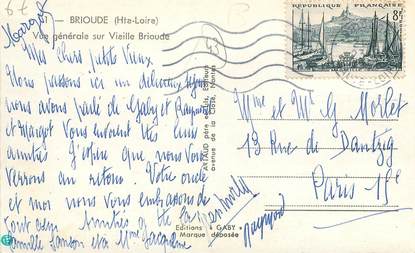 6 €
- BRIOUDE (Hte-Loire)
Vue générale sur Vieille Brioude
REPUBLIQUE FRANÇAISE
8F
Margot
Mes chers petits Vieux
Nous passons ici un délicieux séjour
nous avons parlé de Gaby et Raymond
et Margot Vous envoient leurs
amitiés J'espère que nous Vous
verrons au retour. Votre oncle
et moi nous vous embrassons de
tout cœur Amitiés de la
famille et à Mme Jacqueline
Raymond
Mme et Mr G Morlet
13 Rue de Dantzig
Paris 15e
AYTAUD père et fils, Editeurs
avenue de la Close, Nantes
Editions "GABY"
Marque déposée